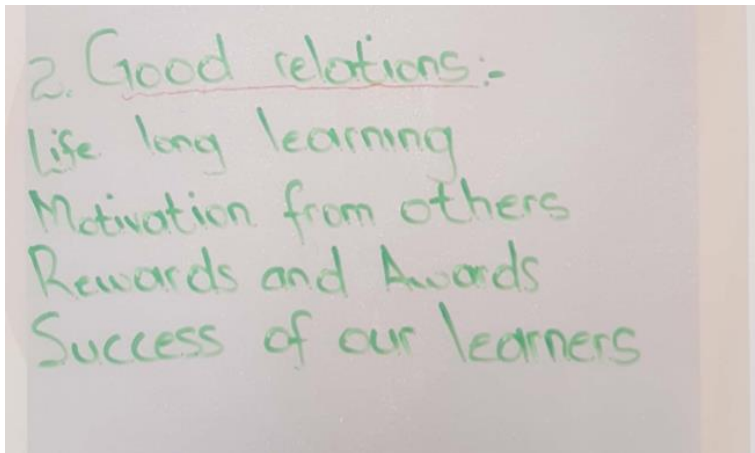 2. Good relations:-
Life long learning
Motivation from others
Rewards and Awards
Success of our learners